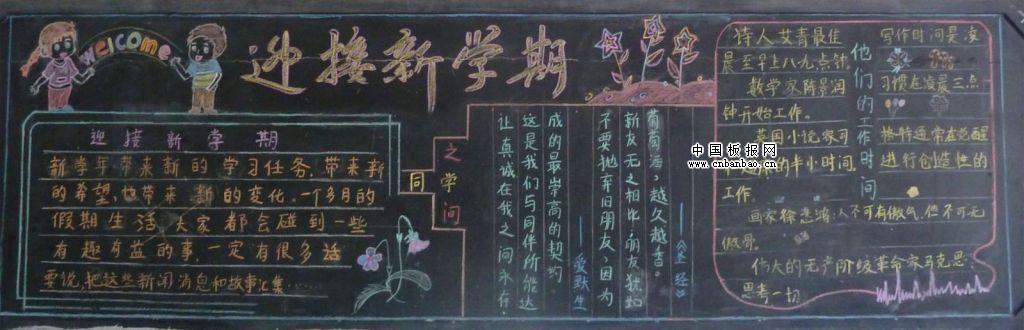 welcome
迎接新学期
迎接新学期
新学年带来新的学习任务,带来新
的希望,也带来新的变化。一个多月的
假期生活大家都会碰到一些
有趣有益的事,一定有很多话
要说,把这些新闻消息和故事汇集
同学
之间
葡萄酒,越久越香。
新友无之相比,朋友犹如
不要抛弃旧朋友,因为
《圣经》
成的最崇高的契约
这是我们与同伴所能达
让真诚在我之间永存
爱默生
他们的工作时间
诗人艾青最佳写作时间是凌
晨至早上八九点钟
数学家陈景润习惯在凌晨三点
钟开始工作。
英国小说家司格特通常在觉醒
的半小时间进行创造性的
工作。
画家徐悲鸿:人不可有傲气,但不可无
傲骨。
伟大的无产阶级革命家马克思:
思考一切
中国板报网
www.cnbanbao.cn